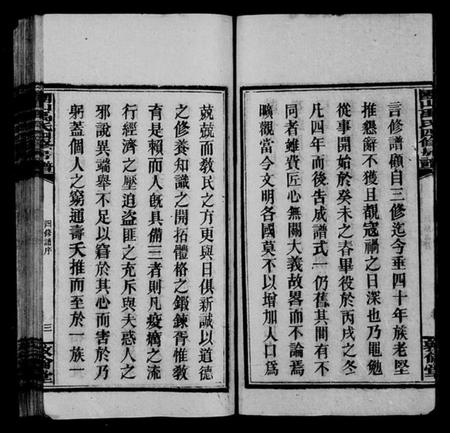 言修譜顧自三修迄今垂四十年族老堅
推懇辭不獲且覩寇禍之日深也乃黽勉
從事開始於癸未之春畢役於丙戌之冬
凡四年而後告成譜式一仍舊其間有不
同者雖費匠心無關大義故畧而不論焉
曠觀當今文明各國莫不以增加人口爲
兢兢而敎民之方更與日俱新誠以道德
之修養知識之開拓體格之鍛鍊胥惟敎
育是賴而人旣具備三者則凡疫癘之流
行經濟之壓迫盜匪之充斥與夫惑人之
邪說異端舉不足以窘於其心而害於乃
躬蓋個人之窮通壽夭推而至於一族一
四修譜序
三
敦倫堂